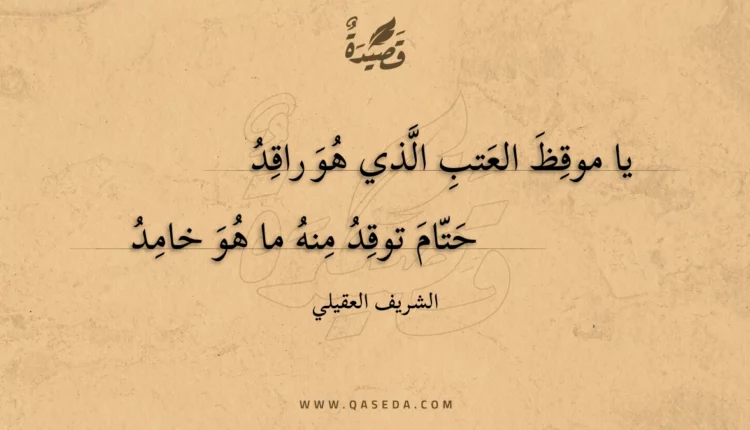 قَصِيْدَةٌ
يا موقِظَ العَتبِ الَّذي هُوَ راقِدُ
حَتّامَ توقِدُ مِنهُ ما هُوَ خامِدُ
الشريف العقيلي
WWW.QASEDA.COM